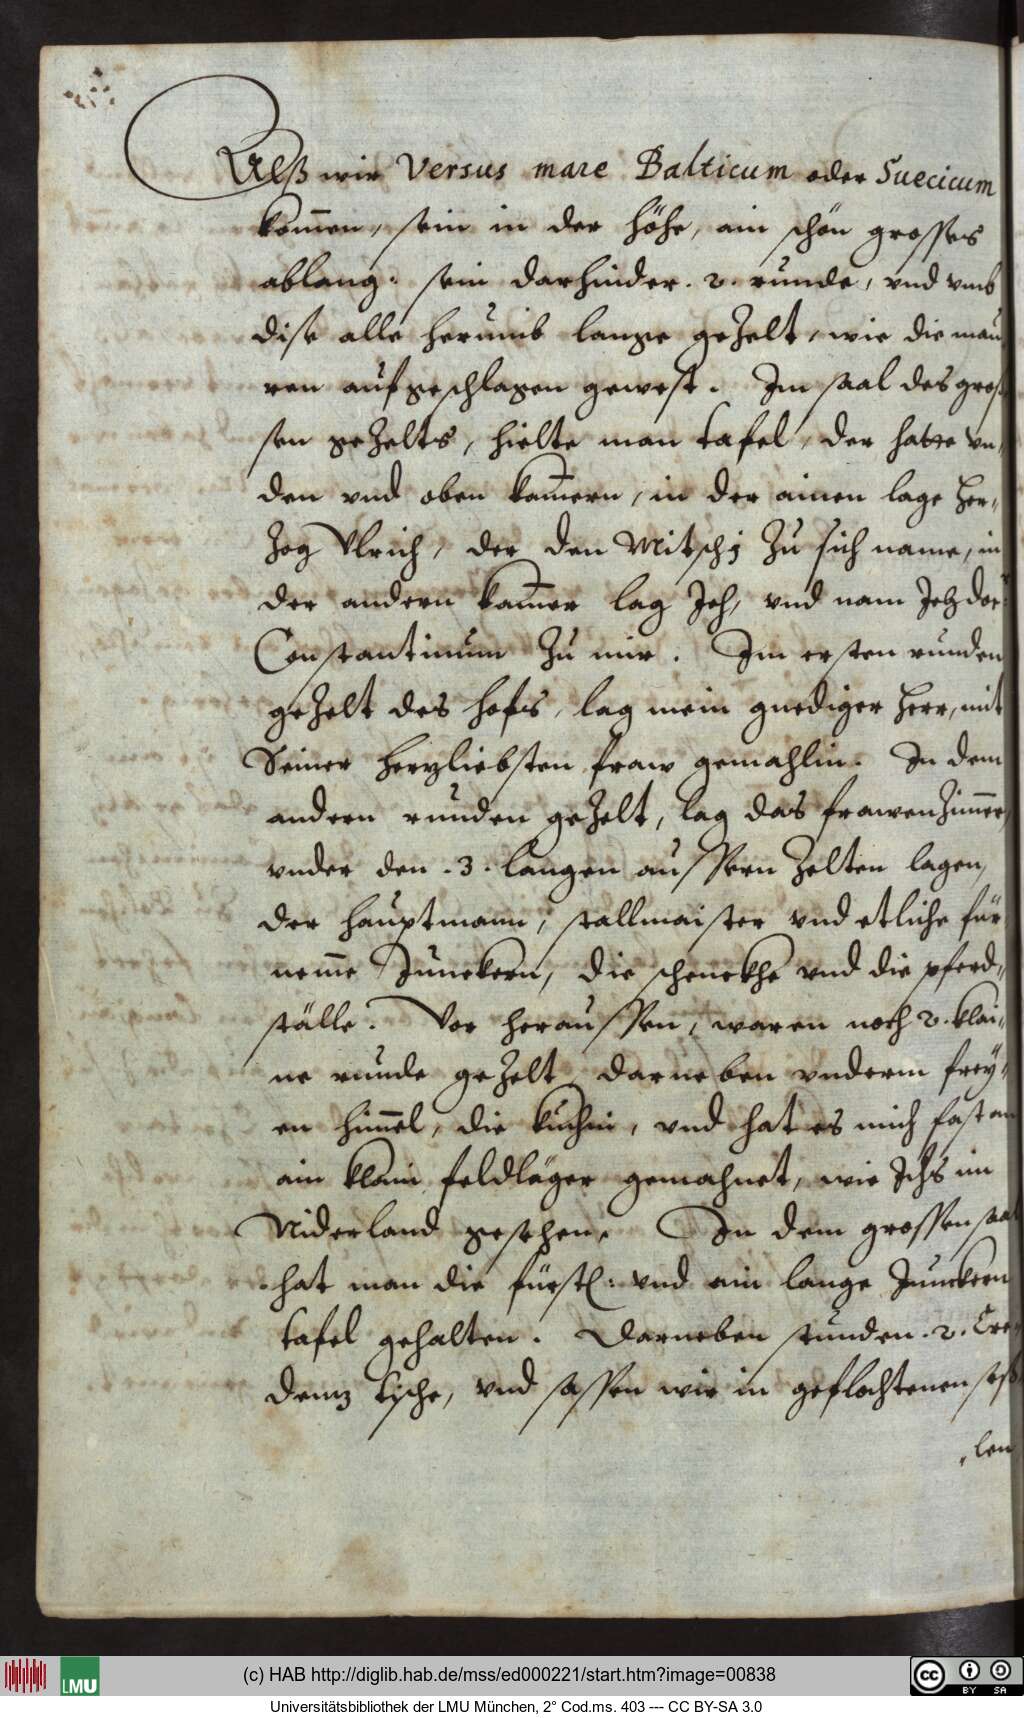 Alß wir Versus mare Balticum oder Suecicum
kom̄en, sein in der höhe, ain schön grosses
ablang: sein darhinder .2. runde, vnd vmb
dise alle herumb lange gezelt, wie die mau
ren aufgeschlagen gewest. Im saal des gros
sen gezelts, hielte man tafel, der hatte vn,
den vnd oben kam̄ern, in der ainen lage Her,
zog Vlrich, der den Mitschj zu sich name, in
der andern kam̄er lag Ich, vnd nam
Constantinum zu mir. Im ersten runden
gezelt des hofs, lag mein gnediger Herr, mit
Seiner herzliebsten fraw gemahlin. In dem
andern runden gezelt, lag das frawenzim̄er,
vnder den .3. langen aussern zelten lagen,
der hauptmann, stallmaister vnd etliche für
neme Junckern, die schenckhe vnd die pferd,,
ställe. Vor heraussen, waren noch 2. klai,,
ne runde gezelt, darneben vnderm frey,,
en him̄el, die kuchin, vnd hat es mich fast an
ain klain feldläger gemahnet, wie Ichs im
Niderland gesehen. In dem grossen saal
hat man die fürstl: vnd ain lange Junckern
tafel gehalten. Darneben stunden .2. Cre,
denz tische, vnd sassen wir in geflochtenen seß
,len
LMU
(c) HAB http://diglib.hab.de/mss/ed000221/start.htm?image=00838
cc BY SA
Universitätsbibliothek der LMU München, 2° Cod.ms. 403 --- CC BY-SA 3.0